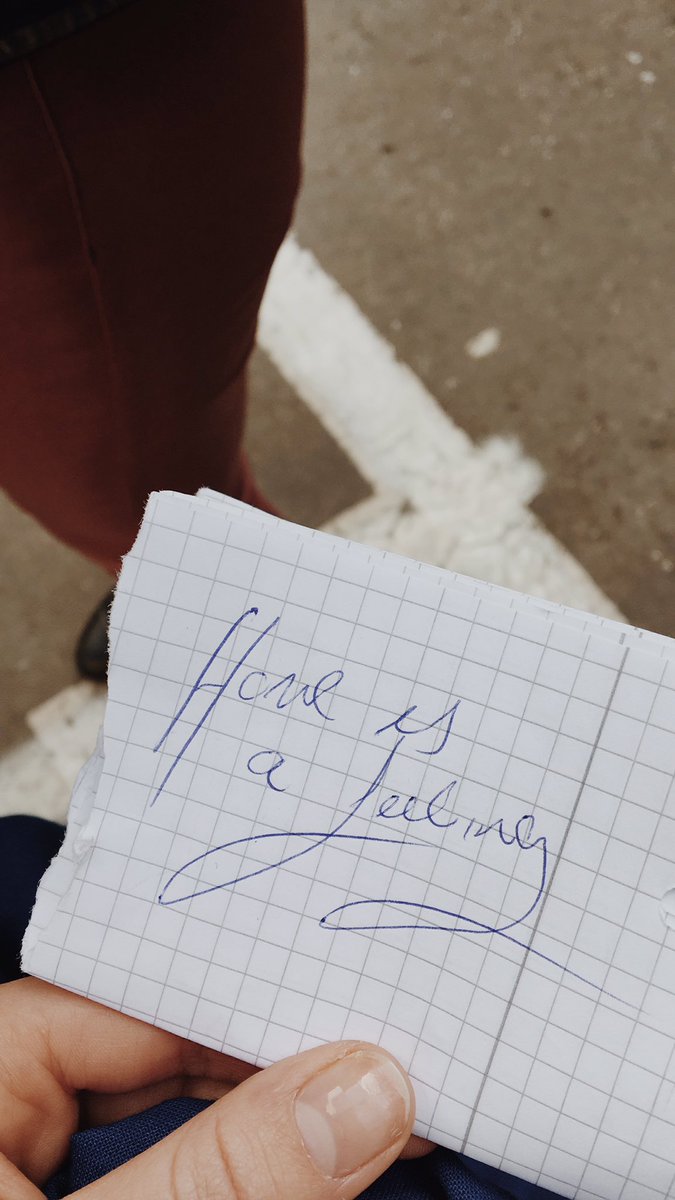 Home is
a feeling